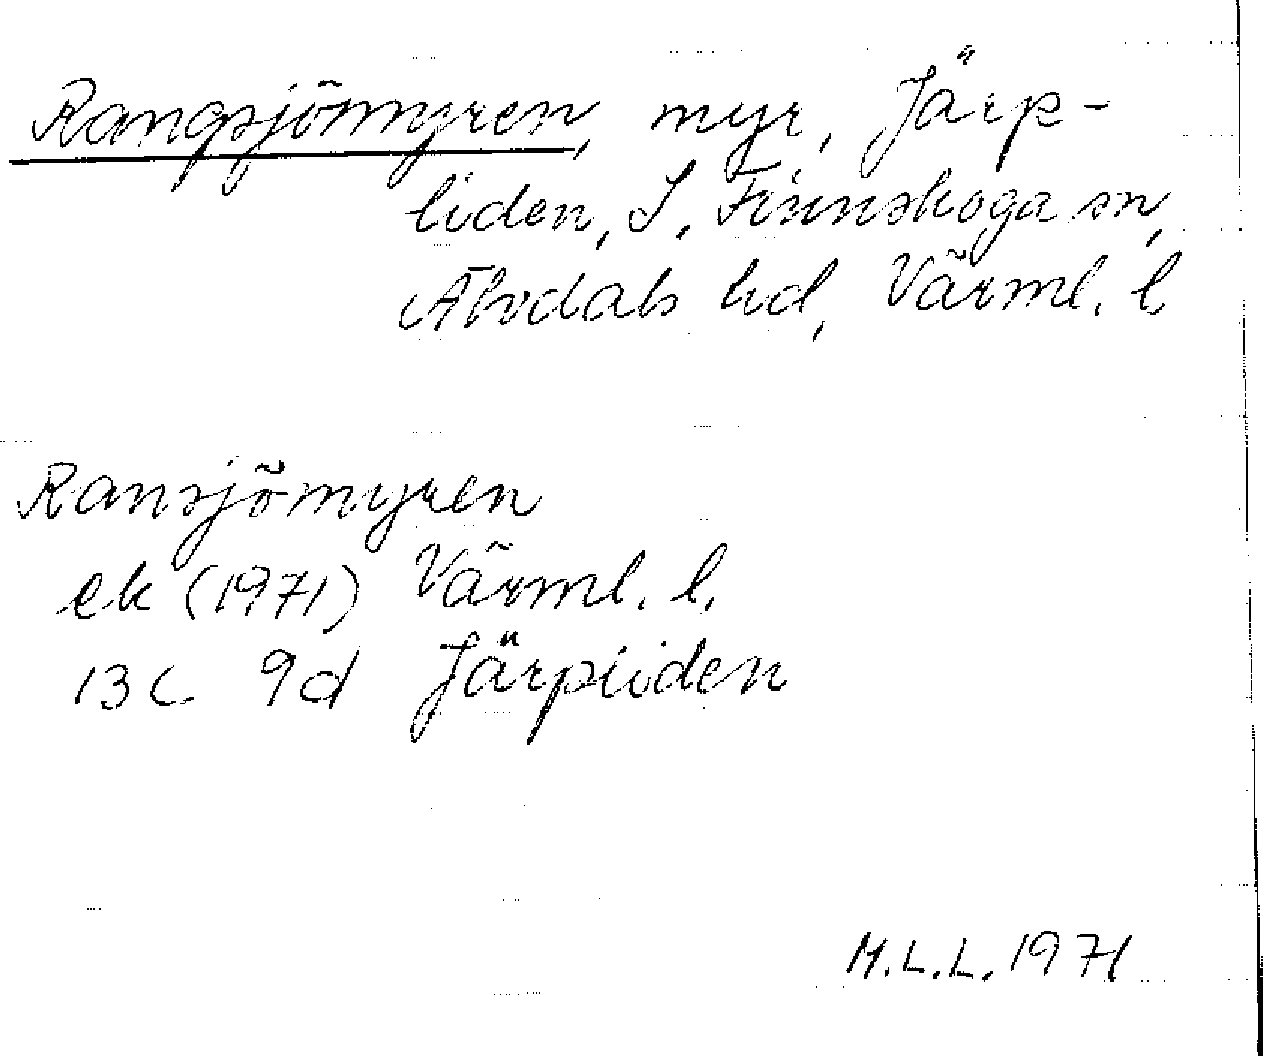 Rangsjömyren, myr, Järp-
liden, S. Finnskoga sn,
Älvdals hd, Värml. l
Ransjömyren
ek (1971) Värml. l.
13C 9d Järpliden
M.L.L. 1971